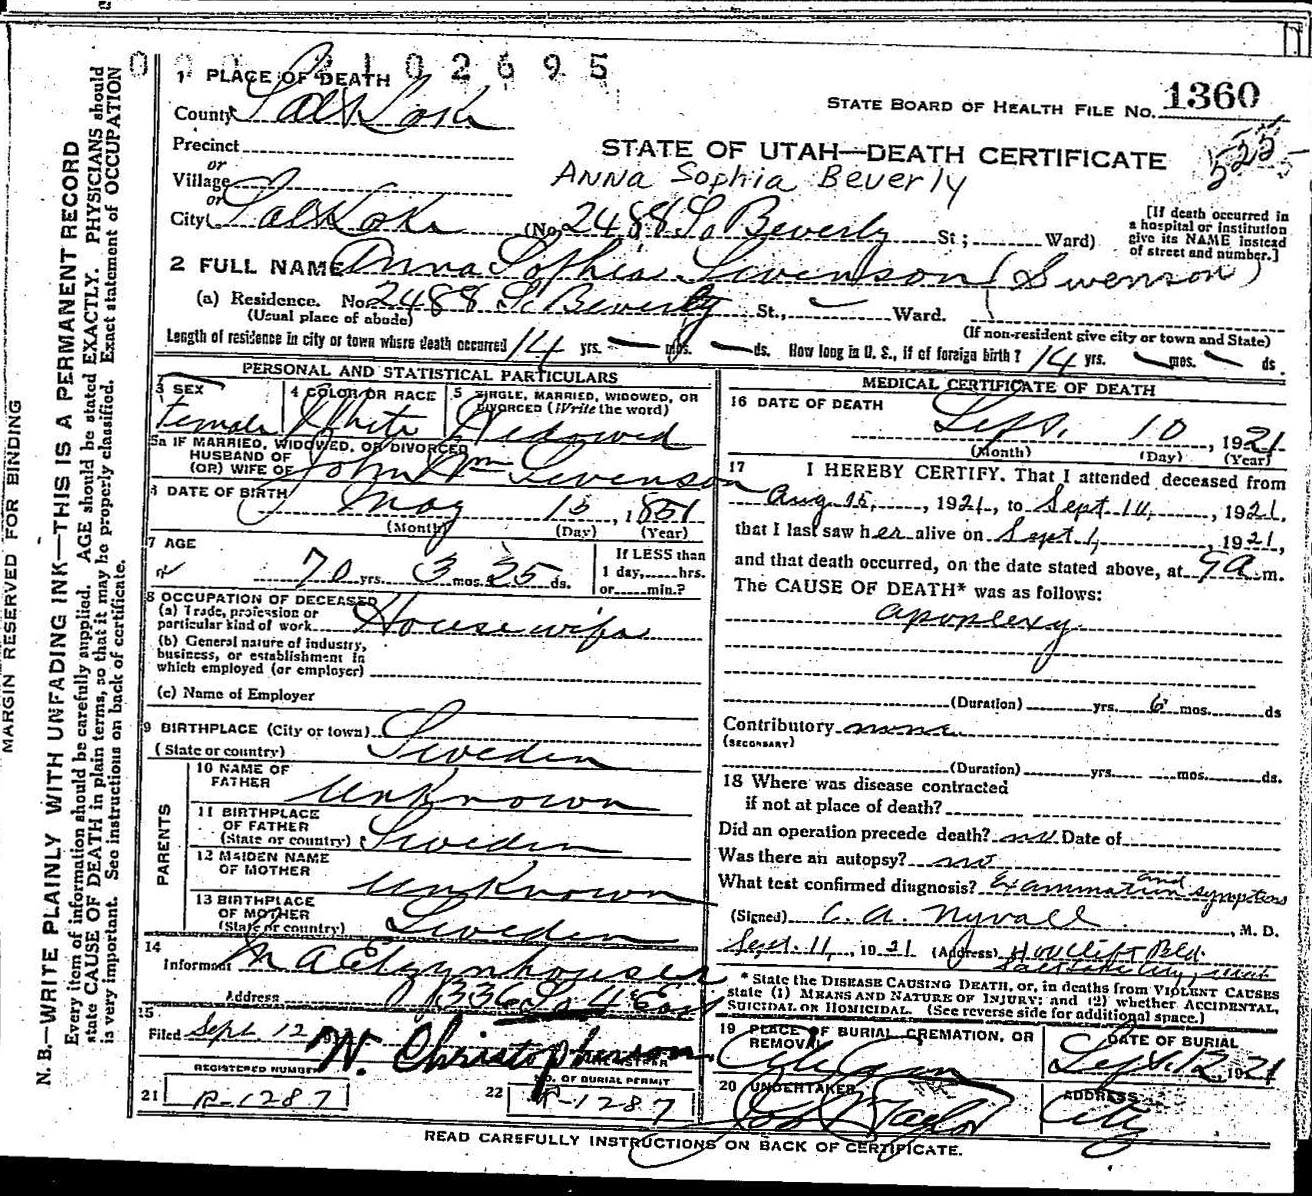 0002102695
1 PLACE OF DEATH
County Salt Lake
STATE BOARD OF HEALTH FILE NO. 1360
Precinct
or
STATE OF UTAH—DEATH CERTIFICATE
525
Village
Anna Sophia Beverly
or
City Salt Lake (No. 2488 So Beverly St; Ward)
[If death occurred in
a hospital or institution
give its NAME instead
of street and number.]
2 FULL NAME Anna Sophia Swenson (Swenson)
(a) Residence. No. 2488 So Beverly St., Ward.
(Usual place of abode)
(If non-resident give city or town and State)
Length of residence in city or town where death occurred 14 yrs. — mos. — ds. How long in U. S., if of foreign birth? 14 yrs. — mos. — ds.
PERSONAL AND STATISTICAL PARTICULARS
3 SEX
Female
4 COLOR OR RACE
White
5 SINGLE, MARRIED, WIDOWED, OR
DIVORCED (Write the word)
Widowed
5a IF MARRIED, WIDOWED, OR DIVORCED
HUSBAND OF
(OR) WIFE OF John Wm Swenson
6 DATE OF BIRTH May 15, 1851
(Month) (Day) (Year)
7 AGE
70 yrs. 3 mos. 25 ds.
If LESS than
1 day, hrs.
or min.?
8 OCCUPATION OF DECEASED
(a) Trade, profession or
particular kind of work Housewife
(b) General nature of industry,
business, or establishment in
which employed (or employer)
(c) Name of Employer
9 BIRTHPLACE (City or town)
(State or country) Sweden
PARENTS
10 NAME OF
FATHER Unknown
11 BIRTHPLACE
OF FATHER
(State or country) Sweden
12 MAIDEN NAME
OF MOTHER Unknown
13 BIRTHPLACE
OF MOTHER
(State or country) Sweden
14
Informant
Address 1336 So 4 East
15
Filed Sept. 12, 19 W. Christopherson
REGISTRAR
REGISTERED NUMBER
21 R-1287
NO. OF BURIAL PERMIT
22 R-1287
MEDICAL CERTIFICATE OF DEATH
16 DATE OF DEATH
Sept. 10, 1921
(Month) (Day) (Year)
17 I HEREBY CERTIFY. That I attended deceased from
Aug 15, 1921, to Sept 10, 1921,
that I last saw her alive on Sept 1, 1921,
and that death occurred, on the date stated above, at 9 A m.
The CAUSE OF DEATH* was as follows:
apoplexy
(Duration) yrs. 6 mos. ds
Contributory none
(SECONDARY)
(Duration) yrs. mos. ds.
18 Where was disease contracted
if not at place of death?
Did an operation precede death? no Date of
Was there an autopsy? no
What test confirmed diagnosis? Examination and symptoms
(Signed) C. A. Nyvall, M. D.
Sept. 11, 1921 (Address)
Salt Lake City, Utah
* State the DISEASE CAUSING DEATH, or, in deaths from VIOLENT CAUSES
state (1) MEANS AND NATURE OF INJURY; and (2) whether ACCIDENTAL,
SUICIDAL OR HOMICIDAL. (See reverse side for additional space.)
19 PLACE OF BURIAL, CREMATION, OR
REMOVAL
DATE OF BURIAL
Sept. 12, 1921
20 UNDERTAKER
Taylor
ADDRESS
City
READ CAREFULLY INSTRUCTIONS ON BACK OF CERTIFICATE.
MARGIN RESERVED FOR BINDING
N. B.—WRITE PLAINLY WITH UNFADING INK—THIS IS A PERMANENT RECORD
Every item of information should be carefully supplied. AGE should be stated EXACTLY. PHYSICIANS should
state CAUSE OF DEATH in plain terms, so that it may be properly classified. Exact statement of OCCUPATION
is very important. See instructions on back of certificate.